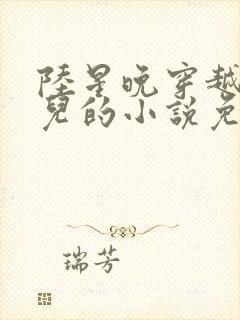 陸星晚穿越
兒的小說免
瑞芳